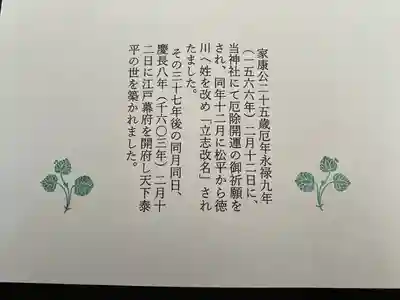 家康公二十五歳厄年永禄九年
（一五六六年）二月十二日に、
当神社にて厄除開運の御祈願を
され、同年十二月に松平から徳
川へ姓を改め「立志改名」され
たました。
その三十七年後の同月同日、
慶長八年（千六〇三年）二月十
二日に江戸幕府を開府し天下泰
平の世を築かれました。